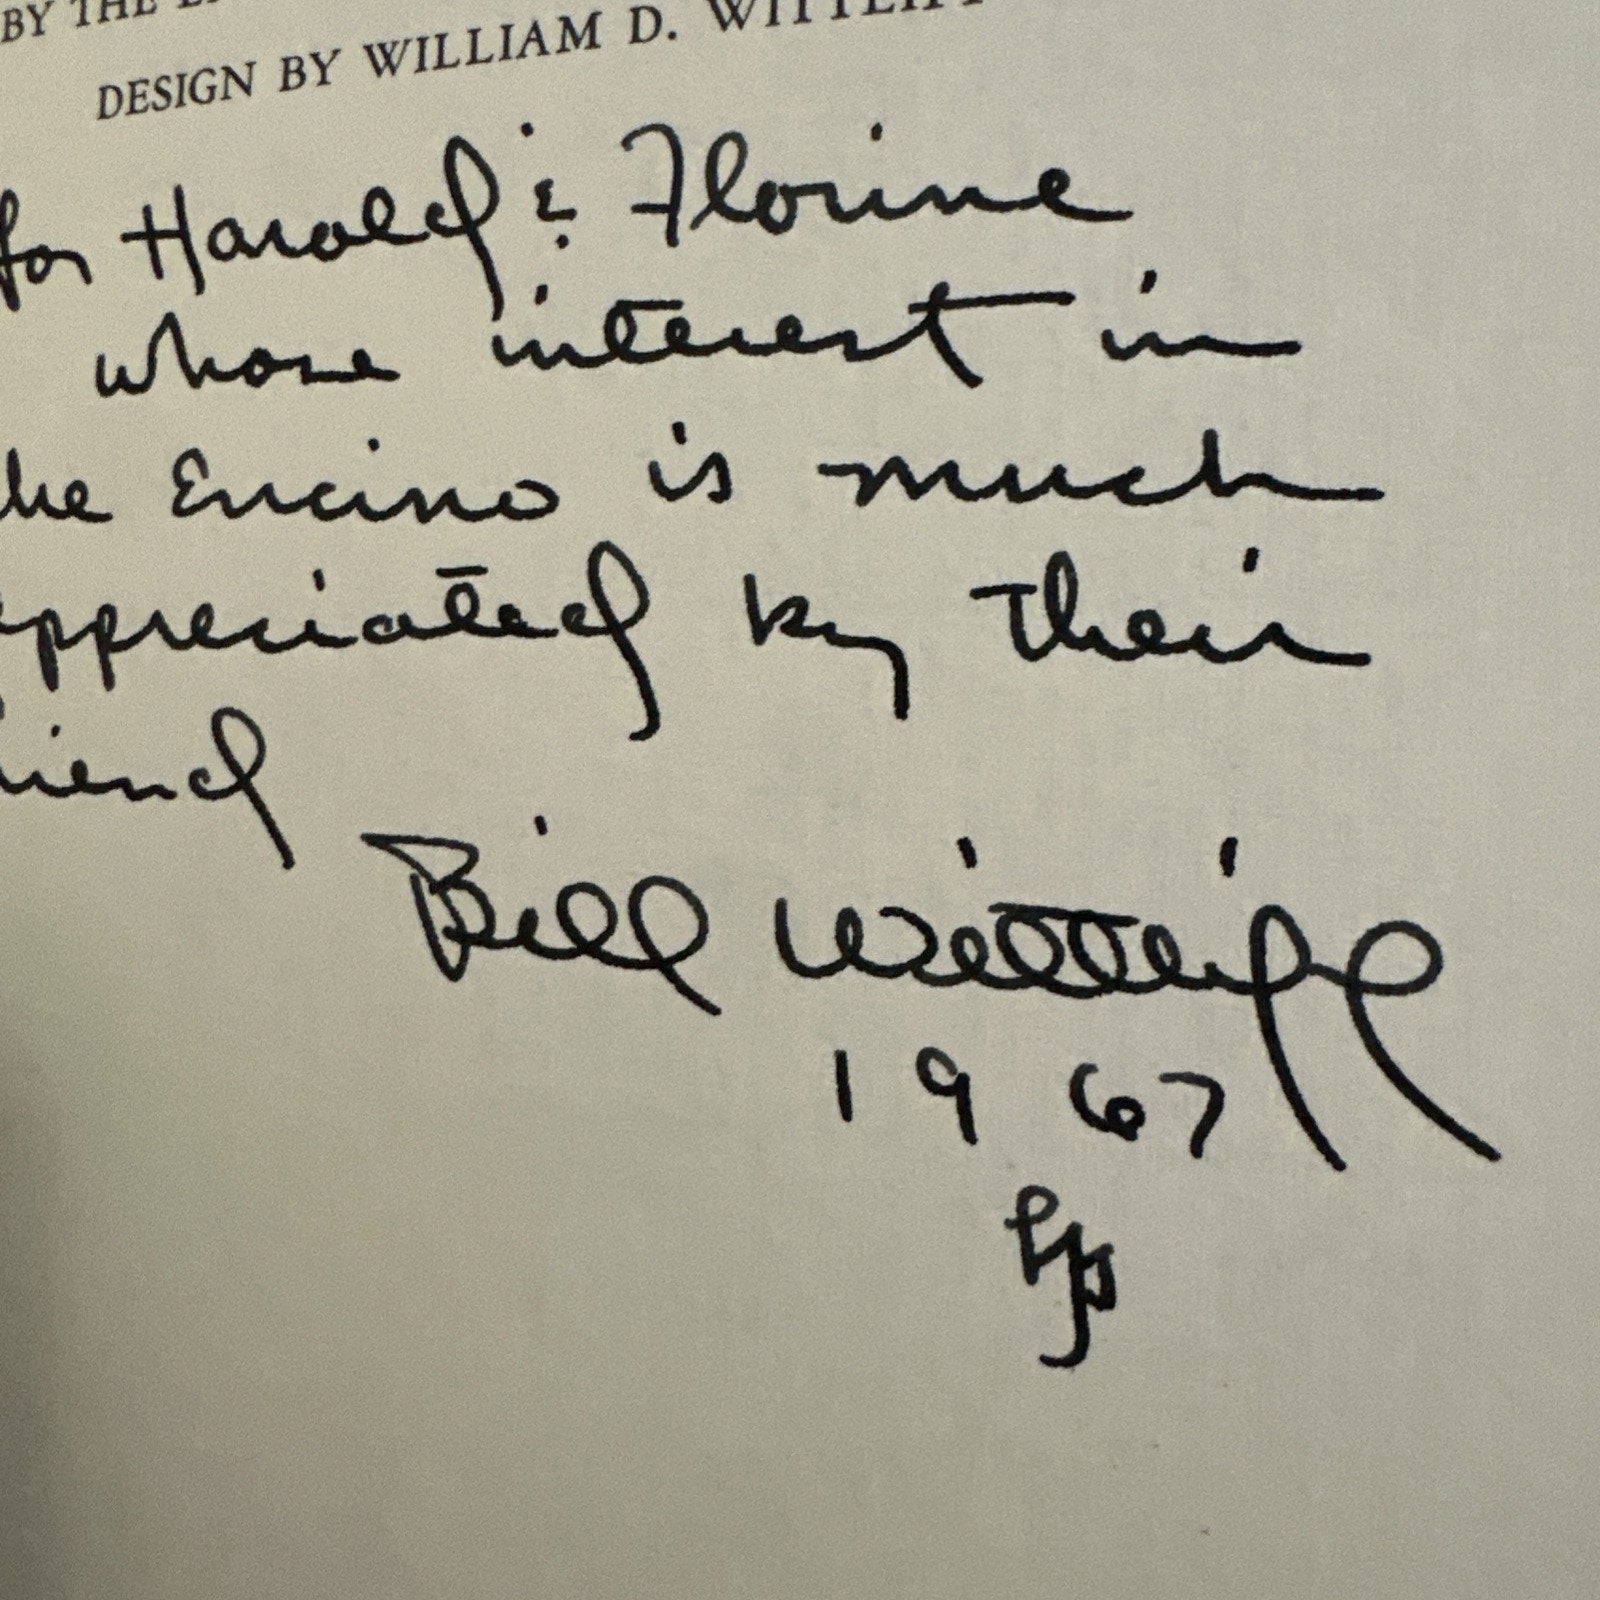 BY THE E
DESIGN BY WILLIAM D. WITTLIFF
for Harold & Florine
whose interest in
he Encino is much
appreciated by their
riend
Bill Wittliff
1967